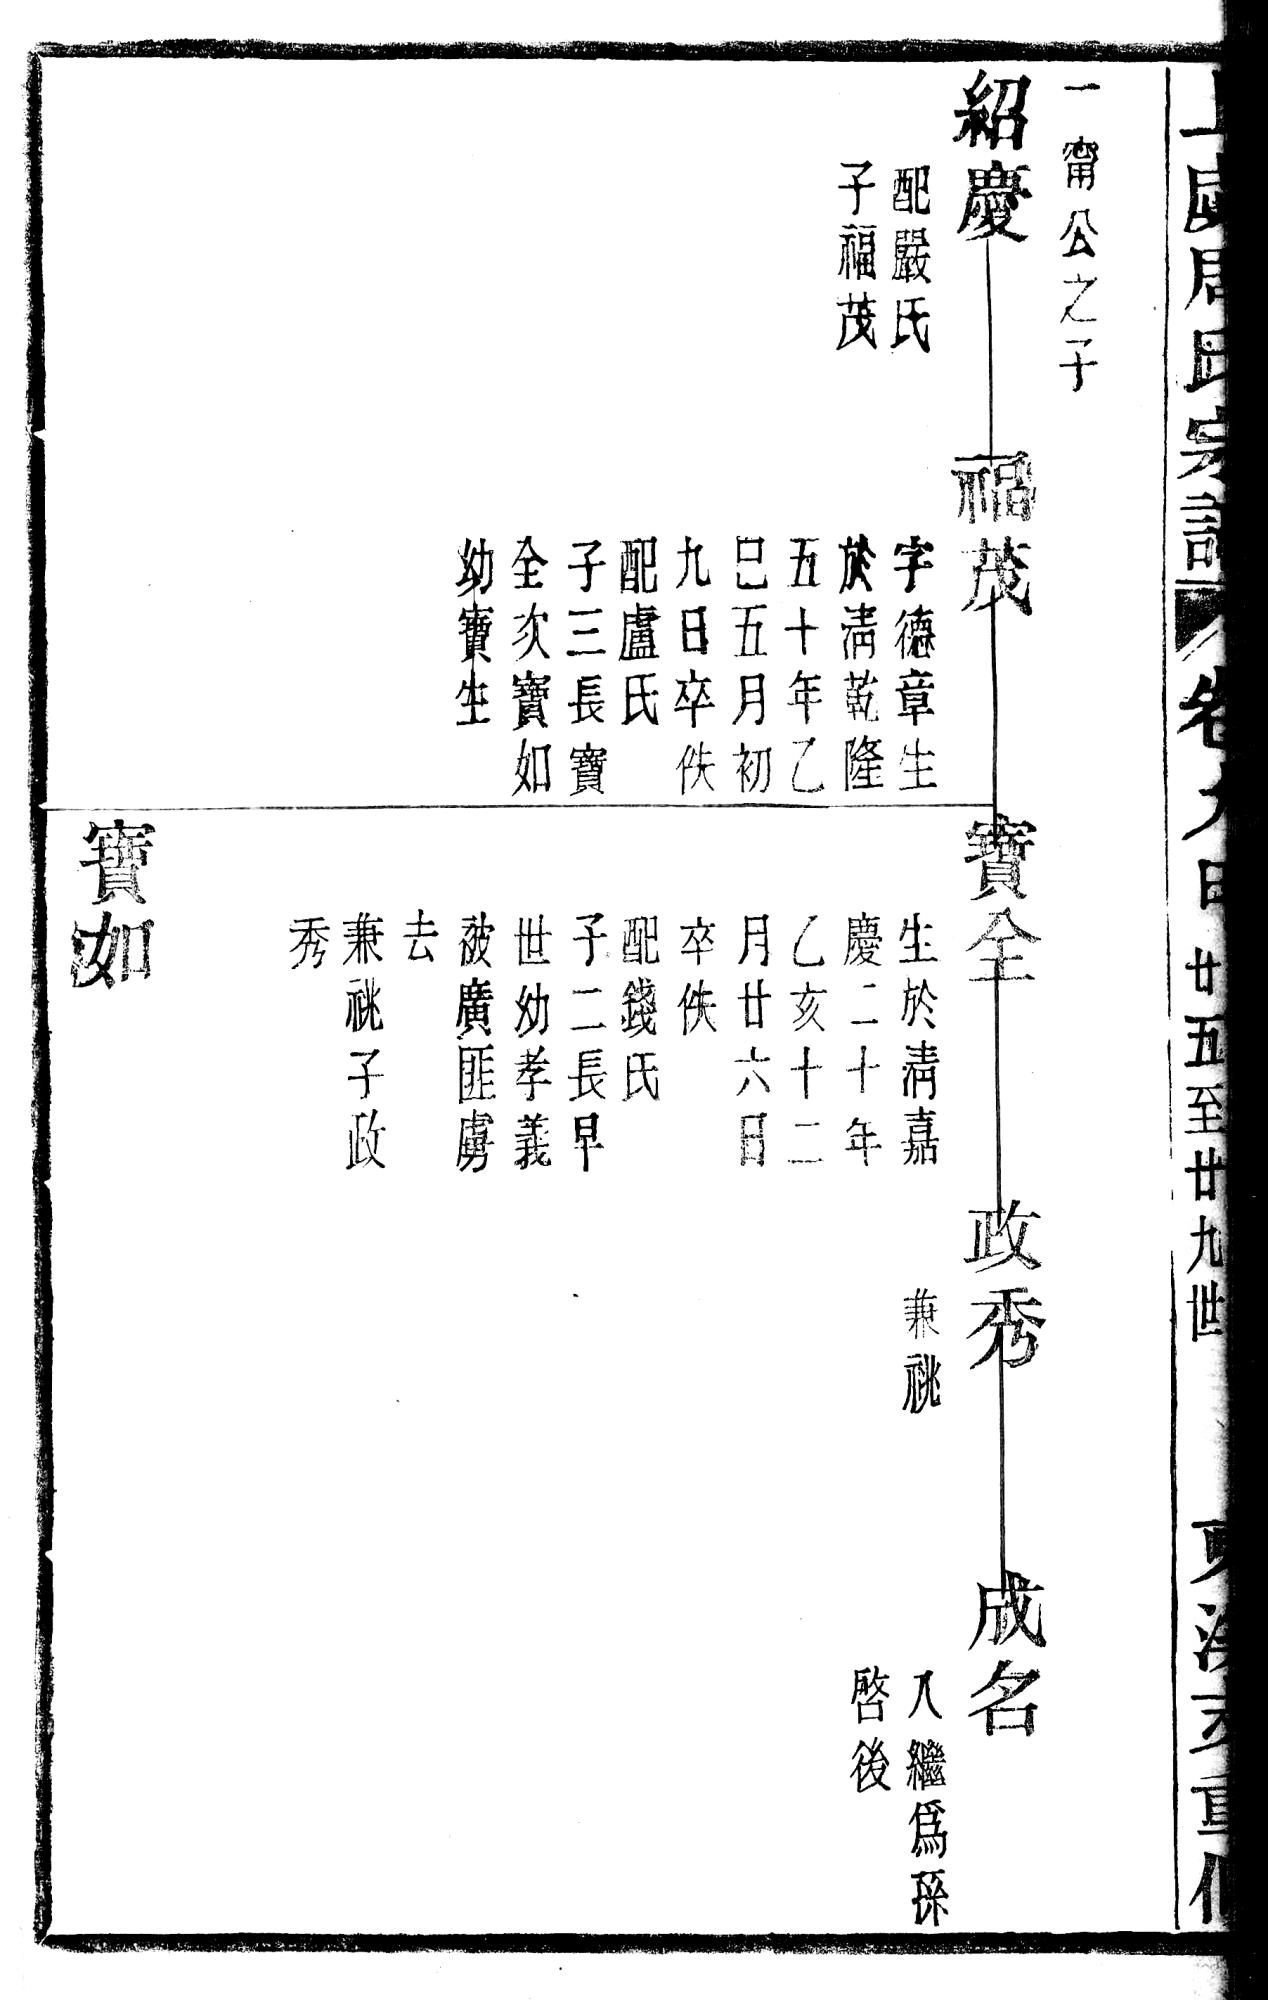 周氏宗譜 卷九 廿五至廿九世
一甯公之子
紹慶
配嚴氏
子福茂
福茂
字德章生
於清乾隆
五十年乙
巳五月初
九日卒佚
配盧氏
子三長寶
全次寶如
幼寶生
寶全
生於清嘉
慶二十年
乙亥十二
月廿六日
卒佚
配錢氏
子二長早
世幼孝義
被廣匪虜
去
兼祧子政
秀
政秀
兼祧
成名
入繼為孫
啓後
寶如